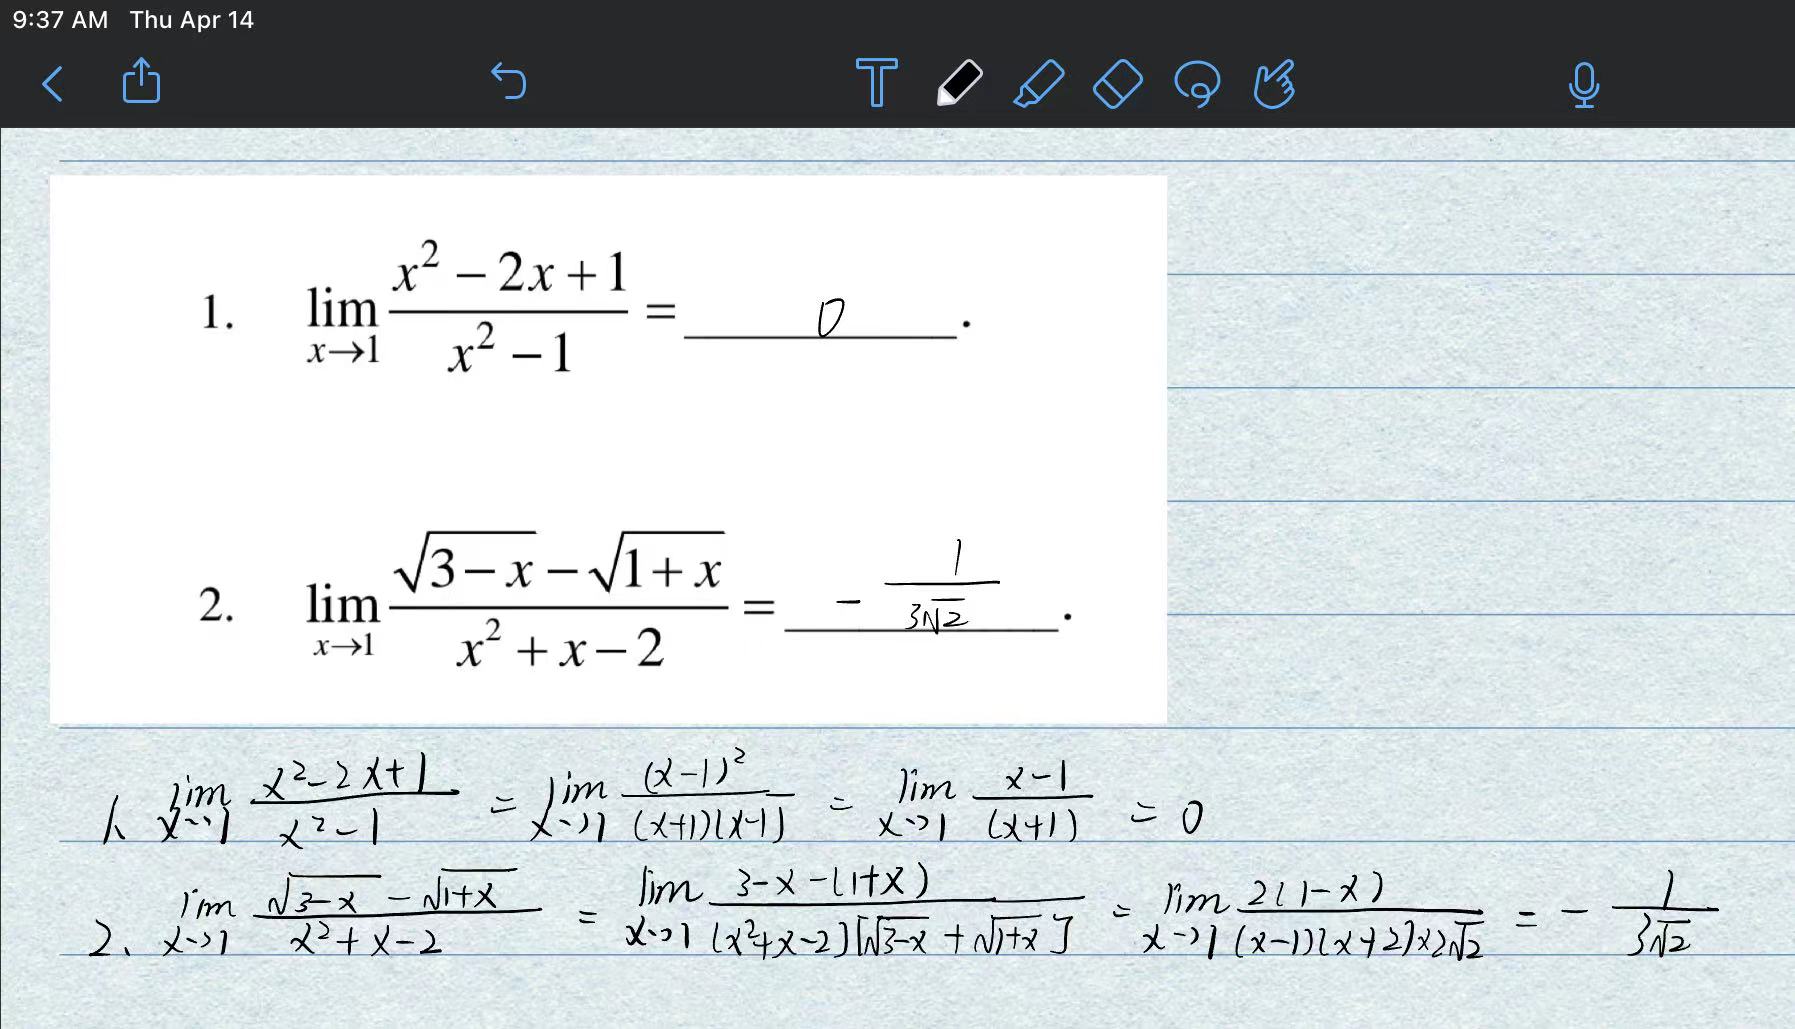 9:37 AM Thu Apr 14
1. lim x→1 (x² − 2x + 1)/(x² − 1) = 0 .
2. lim x→1 (√(3 − x) − √(1 + x))/(x² + x − 2) = − 1/(3√2) .
1、 lim x→1 (x² − 2x + 1)/(x² − 1) = lim x→1 (x−1)²/((x+1)(x−1)) = lim x→1 (x−1)/(x+1) = 0
2、 lim x→1 (√(3−x) − √(1+x))/(x² + x − 2) = lim x→1 (3−x−(1+x))/((x²+x−2)[√(3−x) + √(1+x)]) = lim x→1 2(1−x)/((x−1)(x+2)×2√2) = − 1/(3√2)